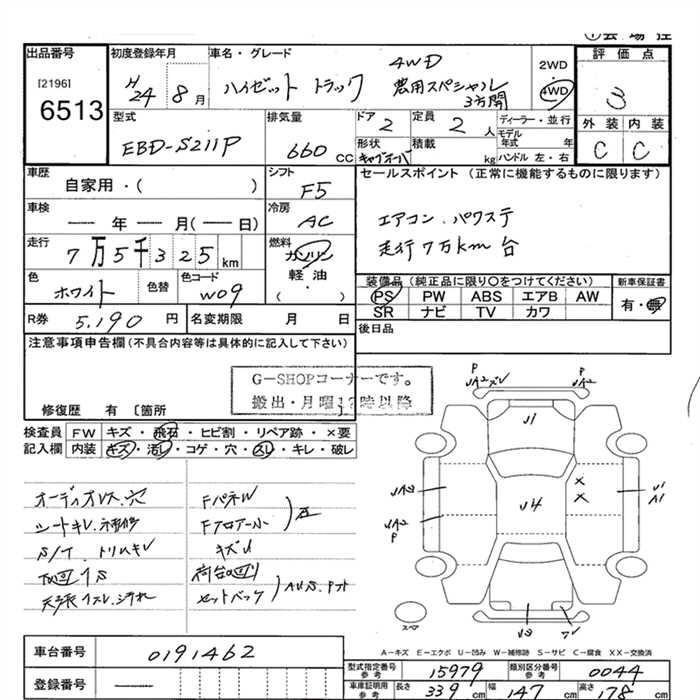 出品番号 初度登録年月 車名・グレード 4WD 2WD 評価点
[2196] H24 8月 ハイゼット トラック 農用スペシャル 4WD 3
6513 3方開
型式 排気量 ドア 2 定員 2人 ディーラー・並行 外装 内装
EBD-S211P 660 CC 形状 キャブオーバ 積載 kg モデル年式 年 ハンドル 左・右 C C
車歴 シフト セールスポイント (正常に機能するものに限ります)
自家用・( ) F5
車検 冷房 エアコン.パワステ
— 年 — 月(— 日) AC 走行7万km台
走行 燃料
7万5千325km ガソリン
軽油
( ・ )
色 色替 色コード 装備品 (純正品に限り〇をつけてください) 新車保証書
ホワイト W09 PS PW ABS エアB AW 有・無
SR ナビ TV カワ
R券 5,190円 名変期限 月 日 後日品
注意事項申告欄(不具合内容等は具体的に記入して下さい)
G-SHOPコーナーです。
搬出・月曜12時以降
修復歴 有 〔箇所 〕
検査員 FW キズ・飛石・ヒビ割・リペア跡・×要
記入欄 内装 キズ・汚レ・コゲ・穴・スレ・キレ・破レ
オーディオレス.穴 Fパネル
シートキレ.補修 Fフロアー小
S/T.トリムキレ キズ
下回りS 荷台回り
天張スレ.汚れ セットバック
P P
UA2 ズレ UA2
U1
UA2 U4 × × U1
A1
UA2
P
U3
スペア
A-キズ E-エクボ U-凹み W-補修跡 S-サビ C-腐食 XX-交換済
車台番号 0191462
型式指定番号 参考 15979 類別区分番号 参考 0044
登録番号 —
車庫証明用 参考 長さ 339 cm 幅 147 cm 高さ 178 cm